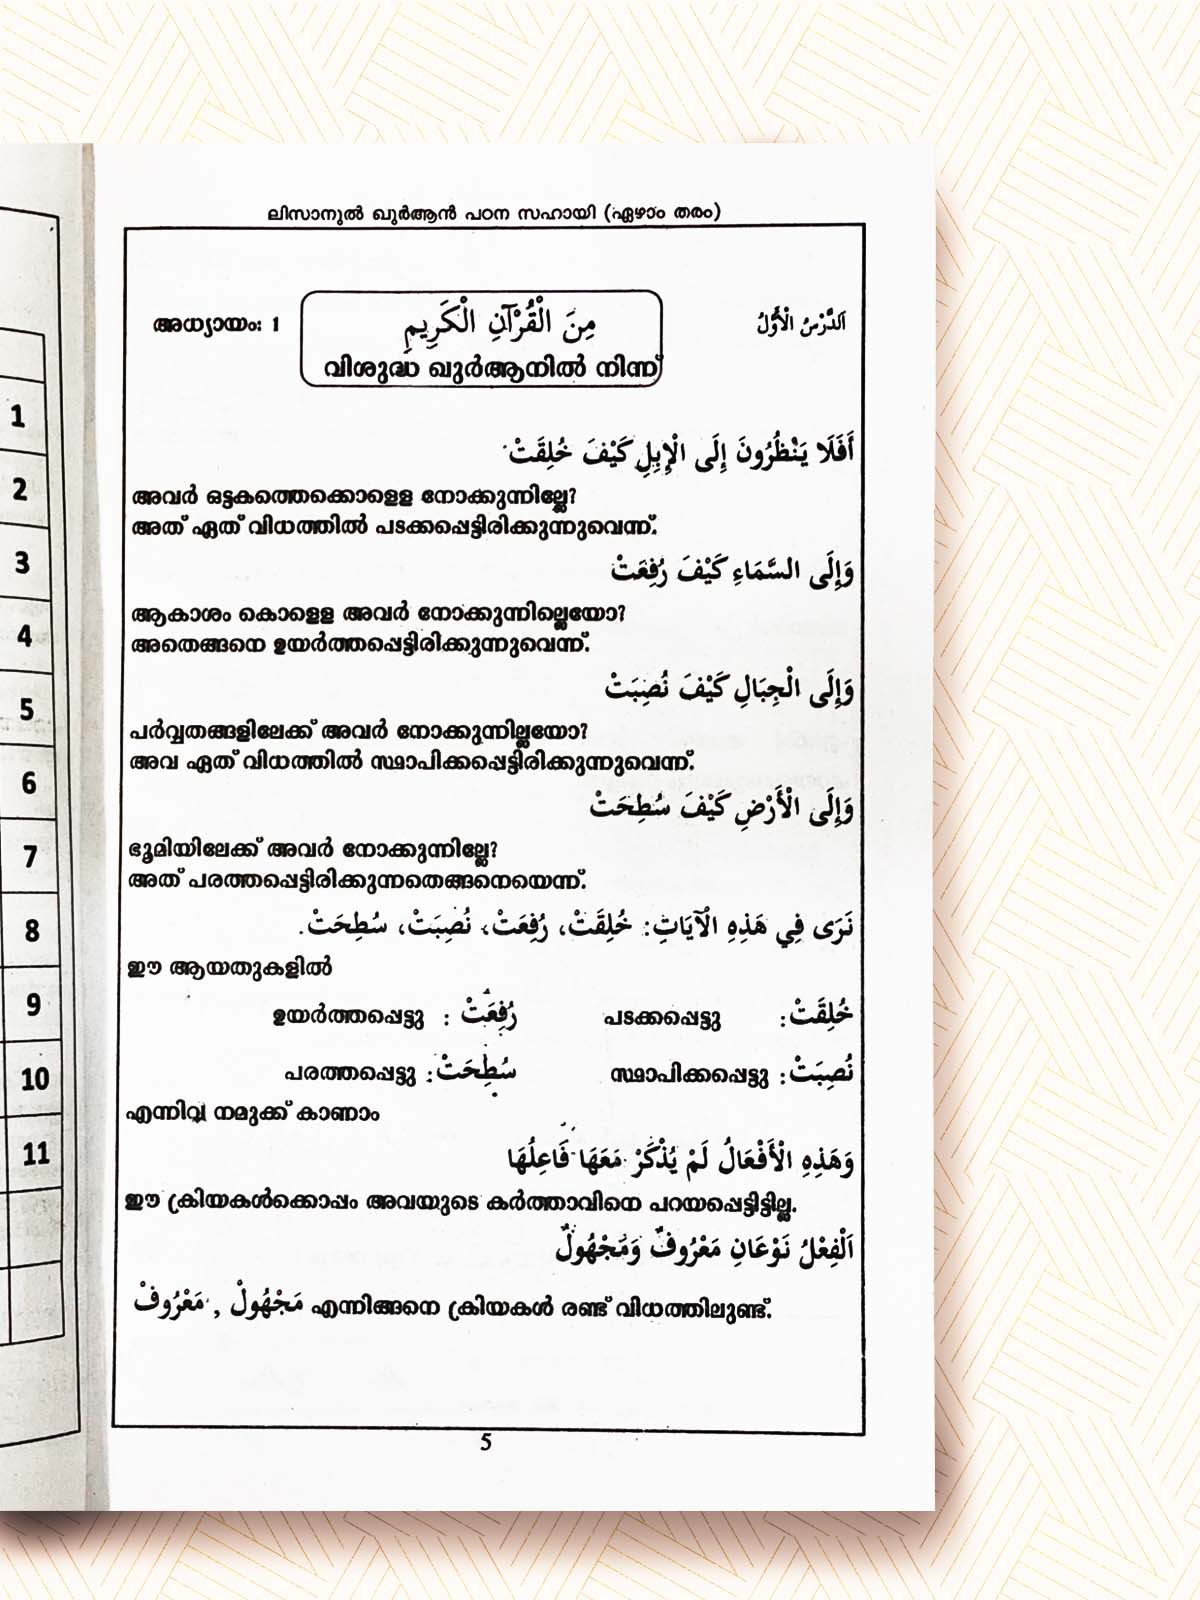 ലിസാനുൽ ഖുർആൻ പഠന സഹായി (ഏഴാം തരം)
അധ്യായം: 1
مِنَ الْقُرْآنِ الْكَرِيمِ
വിശുദ്ധ ഖുർആനിൽ നിന്ന്
اَلدَّرْسُ الْأَوَّلُ
أَفَلَا يَنْظُرُونَ إِلَى الْإِبِلِ كَيْفَ خُلِقَتْ
അവർ ഒട്ടകത്തെക്കൊളെള നോക്കുന്നില്ലേ?
അത് ഏത് വിധത്തിൽ പടക്കപ്പെട്ടിരിക്കുന്നുവെന്ന്.
وَإِلَى السَّمَاءِ كَيْفَ رُفِعَتْ
ആകാശം കൊളെള അവർ നോക്കുന്നില്ലെയോ?
അതെങ്ങനെ ഉയർത്തപ്പെട്ടിരിക്കുന്നുവെന്ന്.
وَإِلَى الْجِبَالِ كَيْفَ نُصِبَتْ
പർവ്വതങ്ങളിലേക്ക് അവർ നോക്കുന്നില്ലയോ?
അവ ഏത് വിധത്തിൽ സ്ഥാപിക്കപ്പെട്ടിരിക്കുന്നുവെന്ന്.
وَإِلَى الْأَرْضِ كَيْفَ سُطِحَتْ
ഭൂമിയിലേക്ക് അവർ നോക്കുന്നില്ലേ?
അത് പരത്തപ്പെട്ടിരിക്കുന്നതെങ്ങനെയെന്ന്.
نَرَى فِي هَذِهِ الْآيَاتِ: خُلِقَتْ، رُفِعَتْ، نُصِبَتْ، سُطِحَتْ.
ഈ ആയതുകളിൽ
خُلِقَتْ: പടക്കപ്പെട്ടു رُفِعَتْ : ഉയർത്തപ്പെട്ടു
نُصِبَتْ: സ്ഥാപിക്കപ്പെട്ടു سُطِحَتْ: പരത്തപ്പെട്ടു
എന്നിവ നമുക്ക് കാണാം
وَهَذِهِ الْأَفْعَالُ لَمْ يُذْكَرْ مَعَهَا فَاعِلُهَا
ഈ ക്രിയകൾക്കൊപ്പം അവയുടെ കർത്താവിനെ പറയപ്പെട്ടിട്ടില്ല.
اَلْفِعْلُ نَوْعَانِ مَعْرُوفٌ وَمَجْهُولٌ
مَعْرُوفْ , مَجْهُولْ എന്നിങ്ങനെ ക്രിയകൾ രണ്ട് വിധത്തിലുണ്ട്.
5
1
2
3
4
5
6
7
8
9
10
11